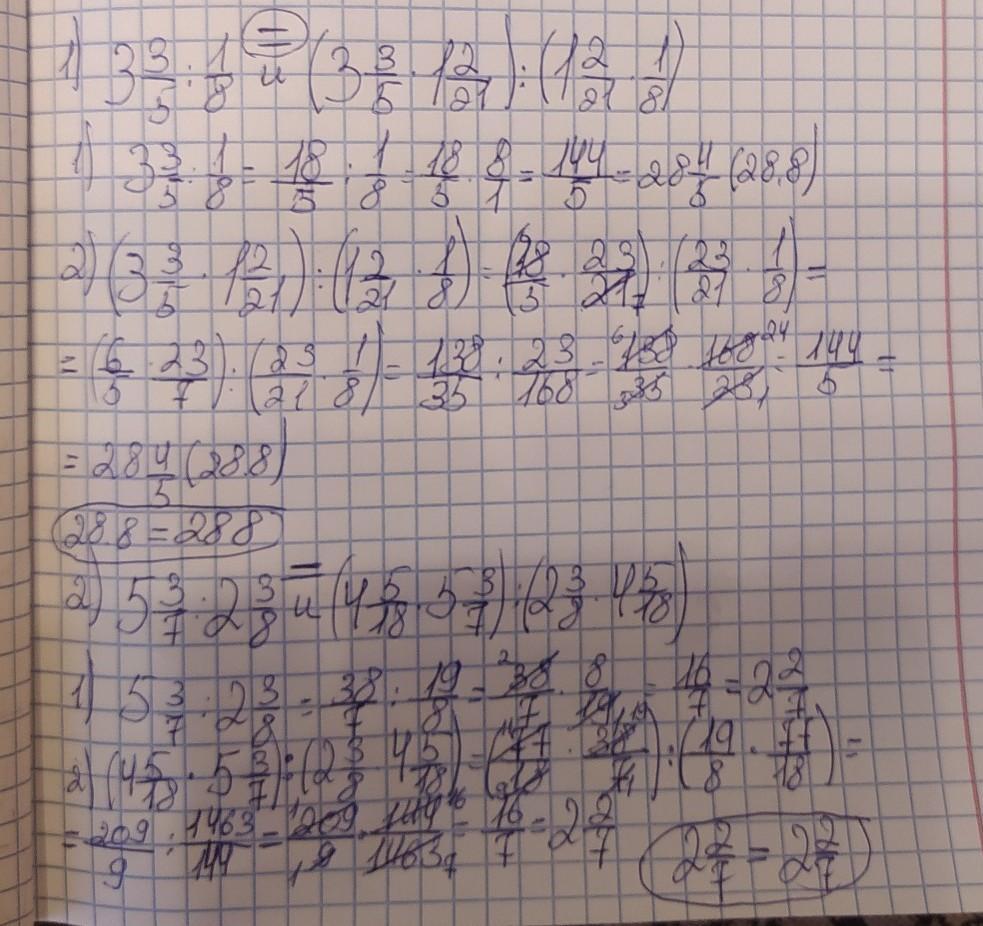 1) 3 3/5 : 1/8 = и (3 3/5 · 1 2/21) : (1 2/21 · 1/8)
1) 3 3/5 : 1/8 = 18/5 : 1/8 = 18/5 · 8/1 = 144/5 = 28 4/5 (28,8)
2) (3 3/5 · 1 2/21) : (1 2/21 · 1/8) = (18/5 · 23/21 7) : (23/21 · 1/8) =
= (6/5 · 23/7) : (23/21 · 1/8) = 138/35 : 23/168 = 6 138/5 35 · 168 24/23 1 = 144/5 =
= 28 4/5 (28.8)
28.8 = 28.8
2) 5 3/7 : 2 3/8 = и (4 5/18 · 5 3/7) : (2 3/8 · 4 5/18)
1) 5 3/7 : 2 3/8 = 38/7 : 19/8 = 2 38/7 · 8/19 1 = 16/7 = 2 2/7
2) (4 5/18 · 5 3/7) : (2 3/8 · 4 5/18) = (11 77/9 18 · 38 19/7 1) : (19/8 · 77/18) =
= 209/9 : 1463/144 = 1 209/1 9 · 144 16/1463 7 = 16/7 = 2 2/7
2 2/7 = 2 2/7